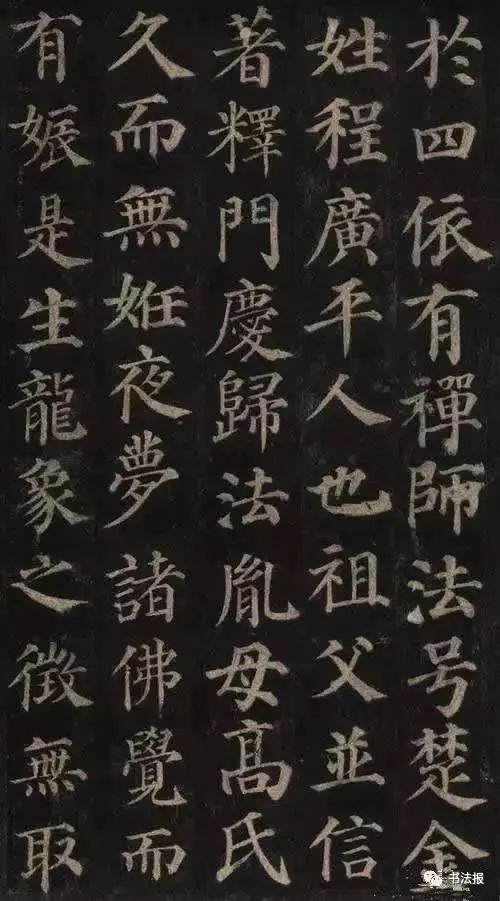 於四依有禪師法号楚金
姓程廣平人也祖父並信
著釋門慶歸法胤母高氏
久而無姙夜夢諸佛覺而
有娠是生龍象之徵無取
书法报